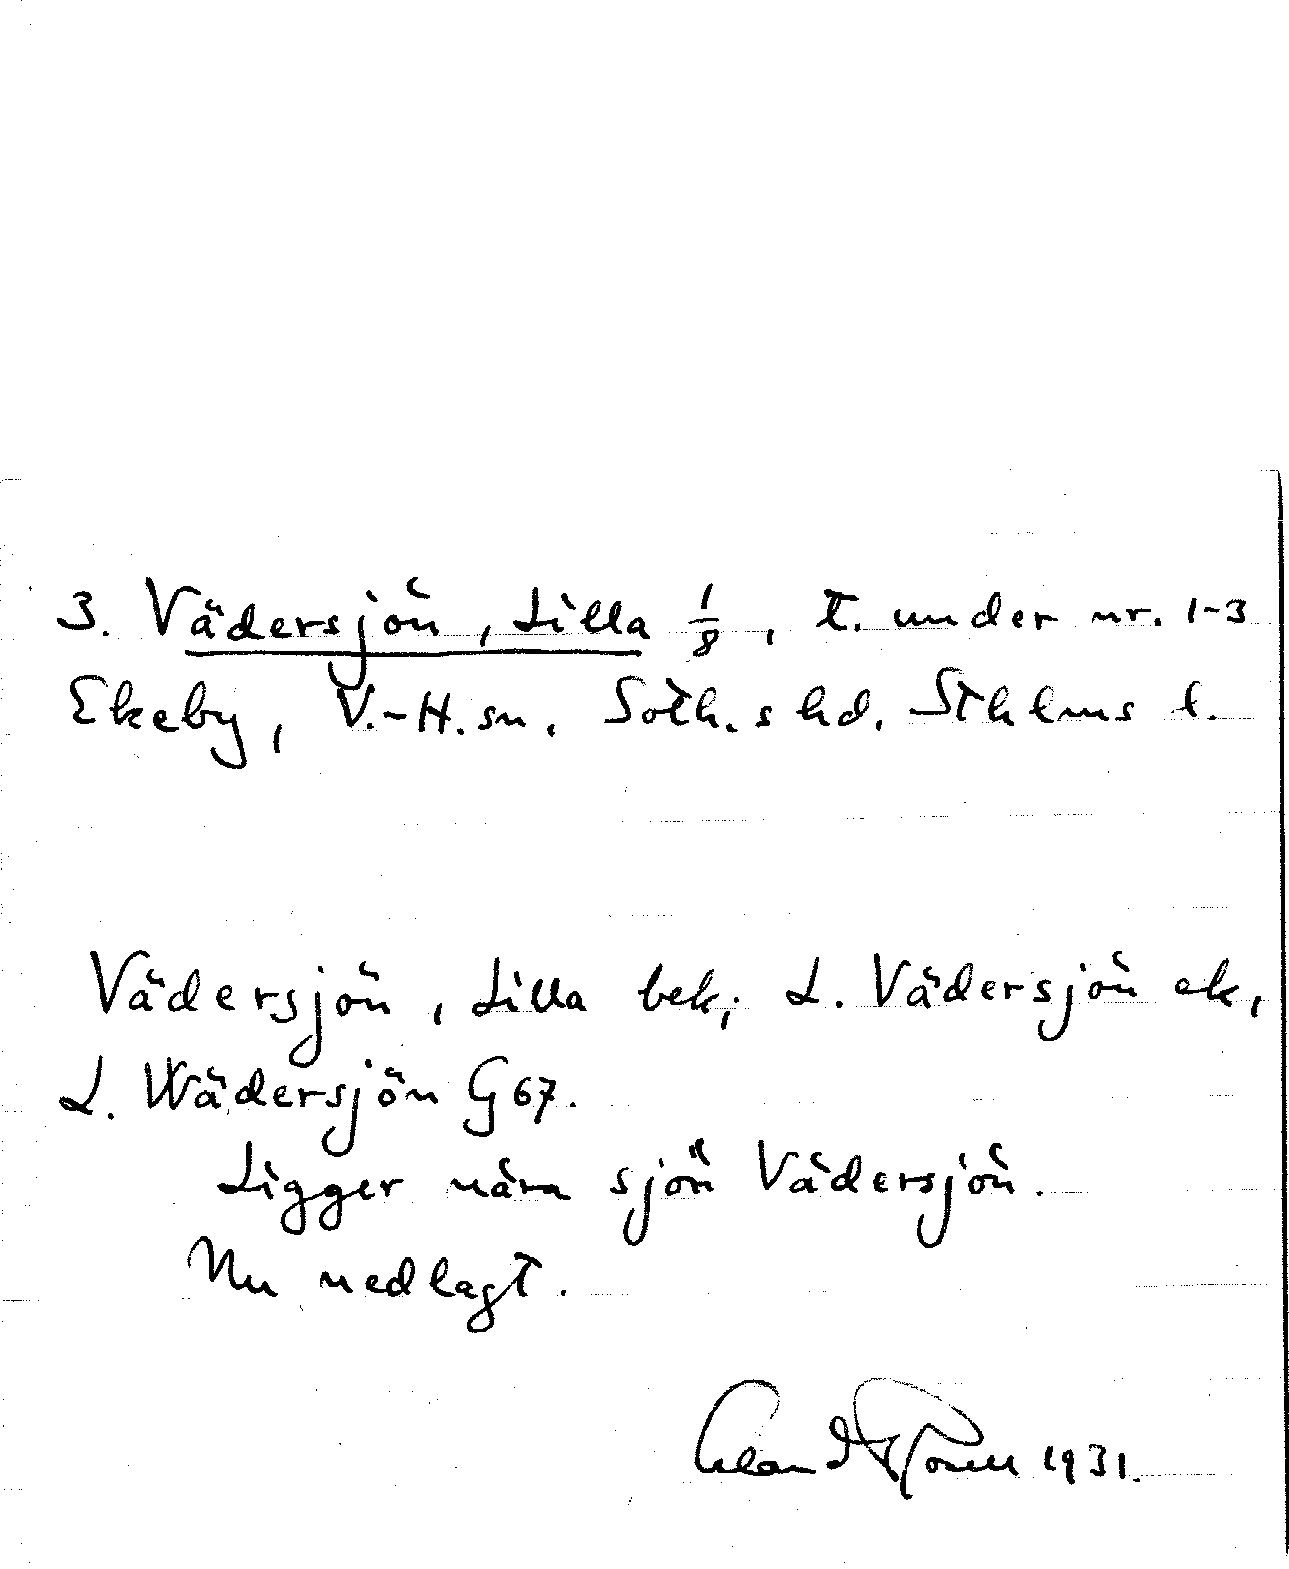 3. Vädersjön, Lilla 1/8, t. under nr. 1-3
Ekeby, V.-H. sn. Soth.s hd. Sthlms l.
Vädersjön, Lilla bek; L. Vädersjön ek,
L. Wädersjön G 67.
Ligger nära sjön Vädersjön.
Nu nedlagt.
1931.